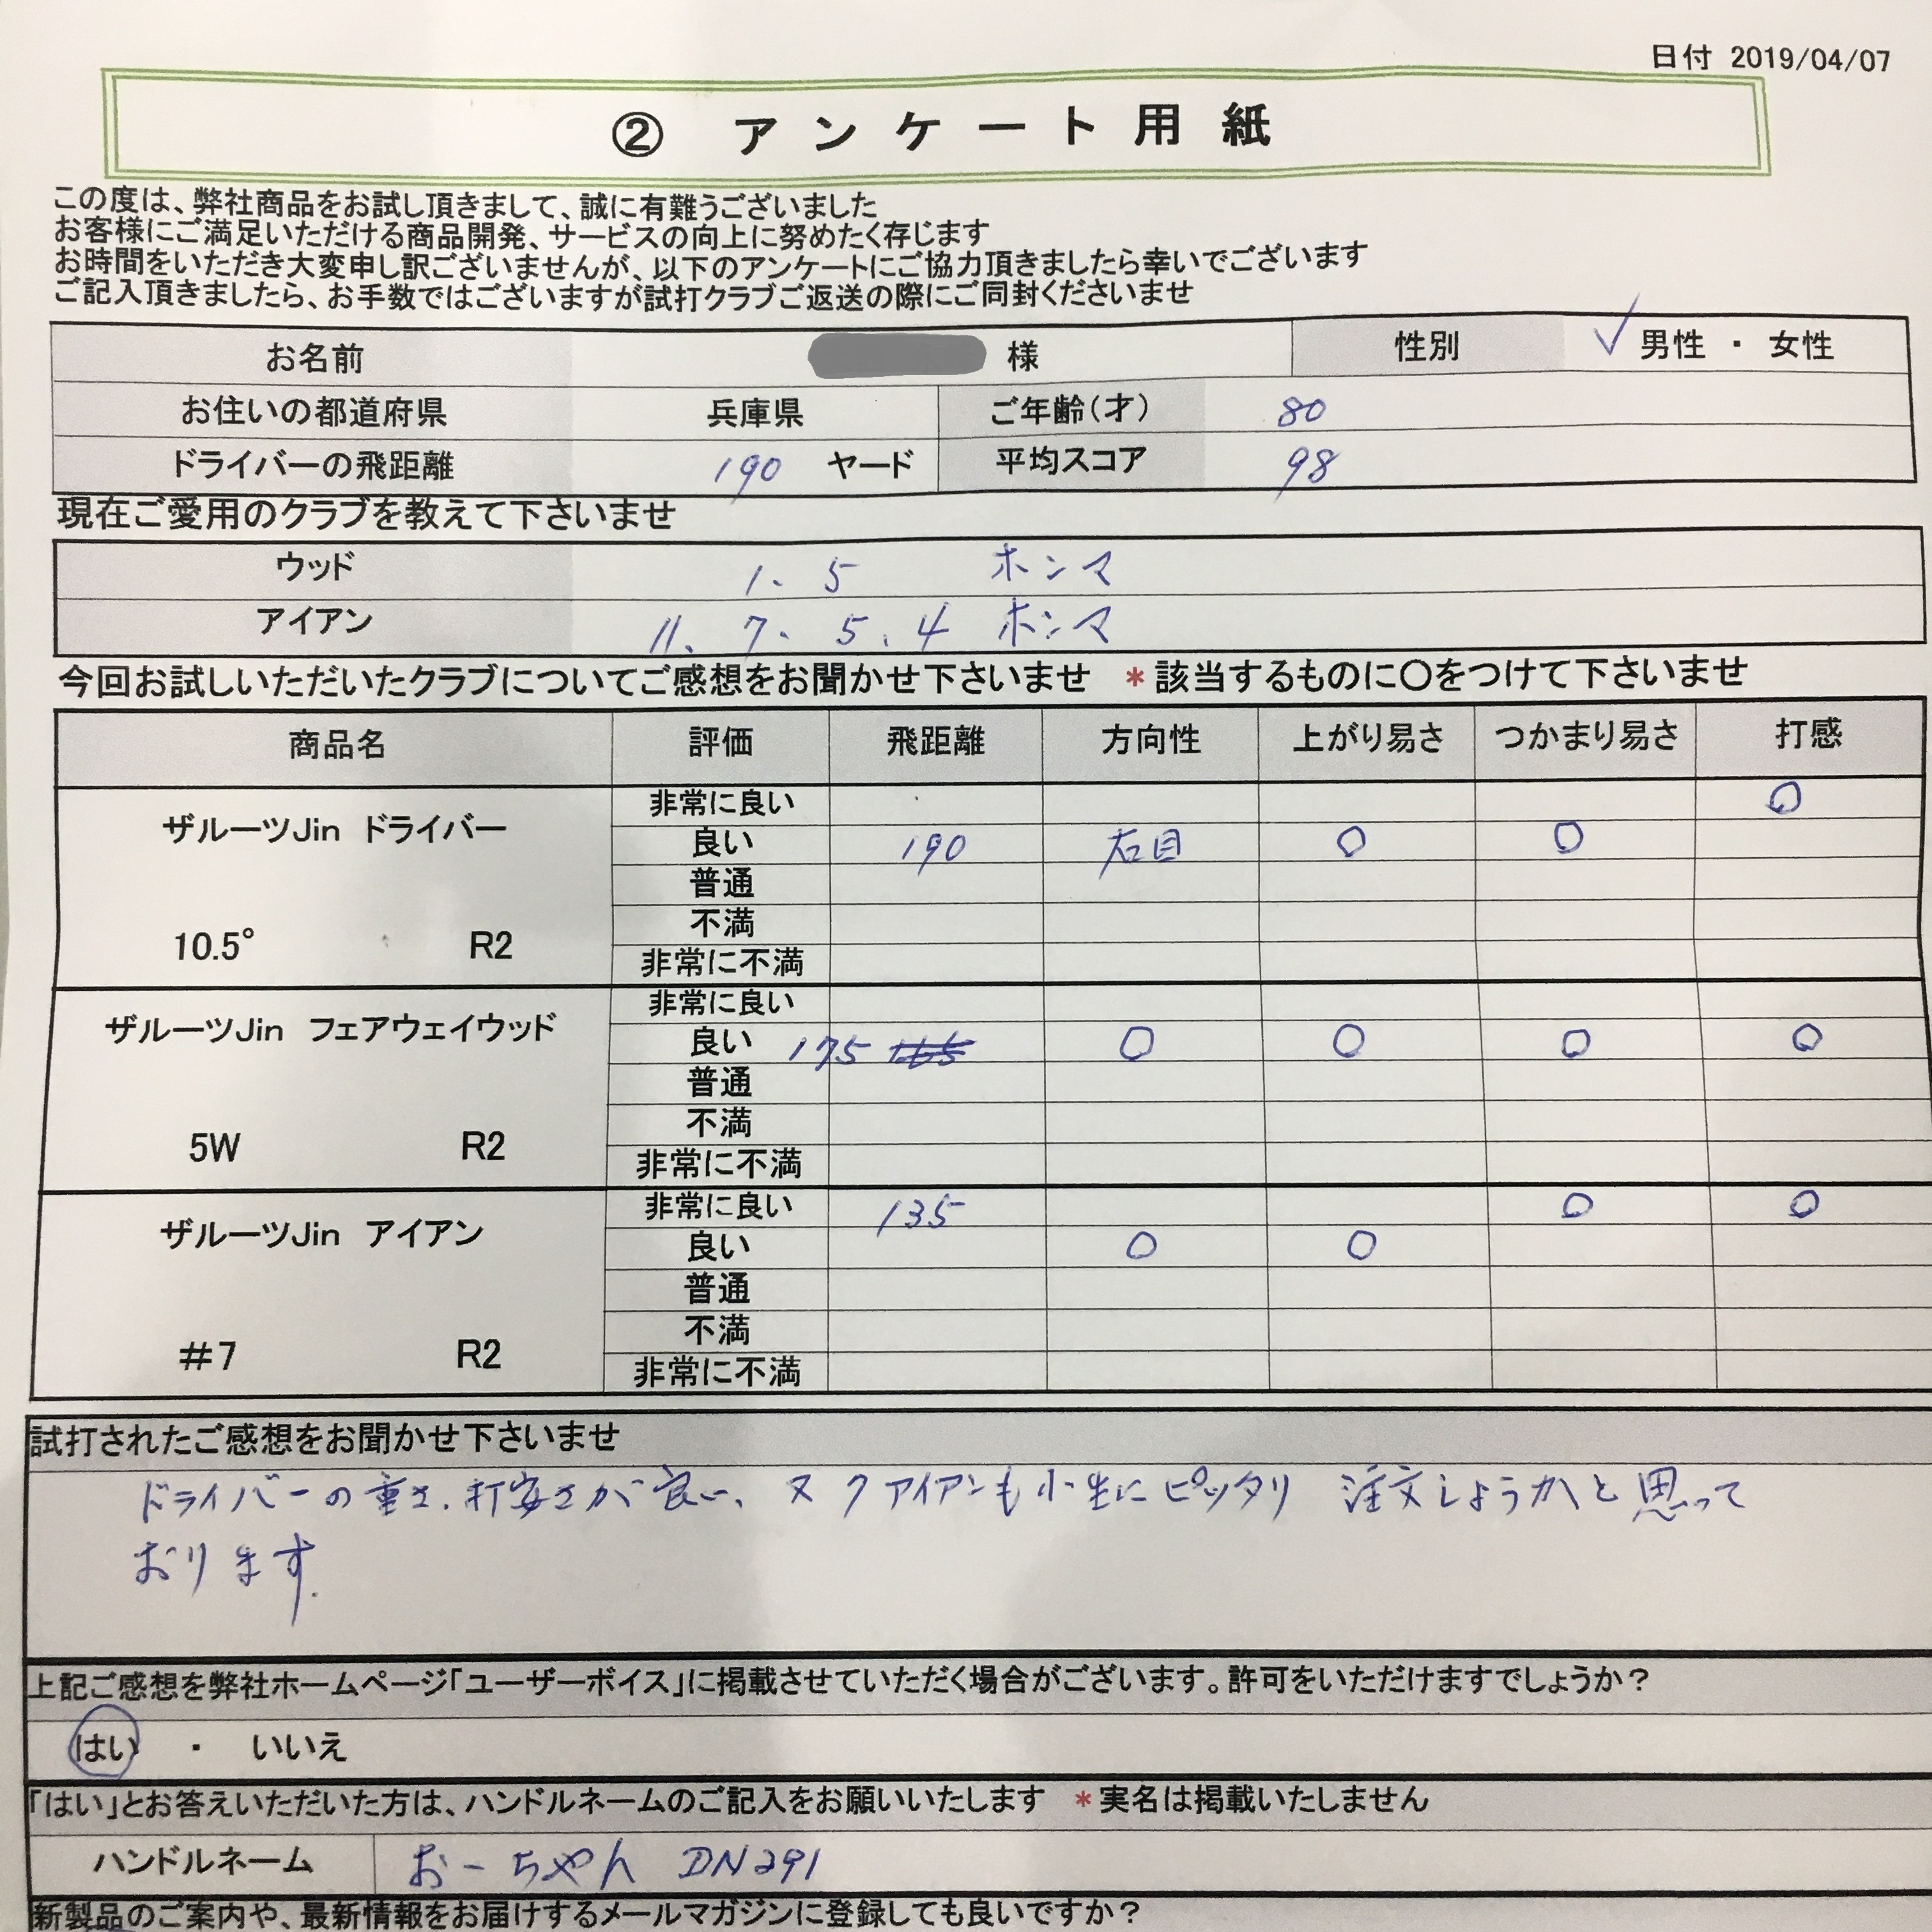 日付 2019/04/07
② アンケート用紙
この度は、弊社商品をお試し頂きまして、誠に有難うございました
お客様にご満足いただける商品開発、サービスの向上に努めたく存じます
お時間をいただき大変申し訳ございませんが、以下のアンケートにご協力頂きましたら幸いでございます
ご記入頂きましたら、お手数ではございますが試打クラブご返送の際にご同封くださいませ
お名前 様 性別 ✓ 男性 ・ 女性
お住いの都道府県 兵庫県 ご年齢(才) 80
ドライバーの飛距離 190 ヤード 平均スコア 98
現在ご愛用のクラブを教えて下さいませ
ウッド 1. 5 ホンマ
アイアン 11. 7. 5. 4 ホンマ
今回お試しいただいたクラブについてご感想をお聞かせ下さいませ *該当するものに〇をつけて下さいませ
商品名 評価 飛距離 方向性 上がり易さ つかまり易さ 打感
ザルーツJin ドライバー
10.5° R2
非常に良い 〇
良い 190 右目 〇 〇
普通
不満
非常に不満
ザルーツJin フェアウェイウッド
5W R2
非常に良い
良い 175 165 〇 〇 〇 〇
普通
不満
非常に不満
ザルーツJin アイアン
#7 R2
非常に良い 135 〇 〇
良い 〇 〇
普通
不満
非常に不満
試打されたご感想をお聞かせ下さいませ
ドライバーの重さ、打安さが良い、又7アイアンも小生にピッタリ 注文しようかと思って
おります.
上記ご感想を弊社ホームページ「ユーザーボイス」に掲載させていただく場合がございます。許可をいただけますでしょうか?
はい ・ いいえ
「はい」とお答えいただいた方は、ハンドルネームのご記入をお願いいたします *実名は掲載いたしません
ハンドルネーム おーちゃん DN291
新製品のご案内や、最新情報をお届けするメールマガジンに登録しても良いですか?